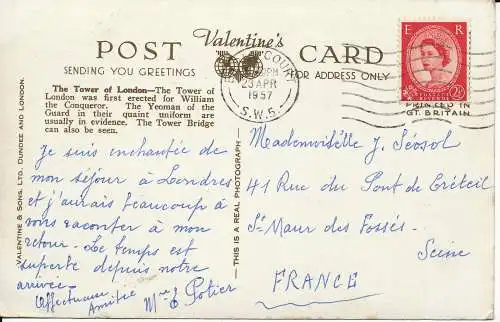 POST Valentine's CARD
SENDING YOU GREETINGS
FOR ADDRESS ONLY
The Tower of London—The Tower of
London was first erected for William
the Conqueror. The Yeoman of the
Guard in their quaint uniform are
usually in evidence. The Tower Bridge
can also be seen.
Je suis enchantée de
mon séjour à Londres
et j'aurais beaucoup à
vous raconter à mon
retour. Le temps est
superbe depuis notre
arrivée.
Amitiés
Mme E Potier
VALENTINE & SONS, LTD. DUNDEE AND LONDON.
—THIS IS A REAL PHOTOGRAPH—
COURT
PM
23 APR
1957
S.W.5.
E R
POSTAGE REVENUE
2½D
PRINTED IN
GT. BRITAIN
Mademoiselle J. Séosol
41 Rue du Pont de Créteil
St Maur des Fossés
Seine
FRANCE